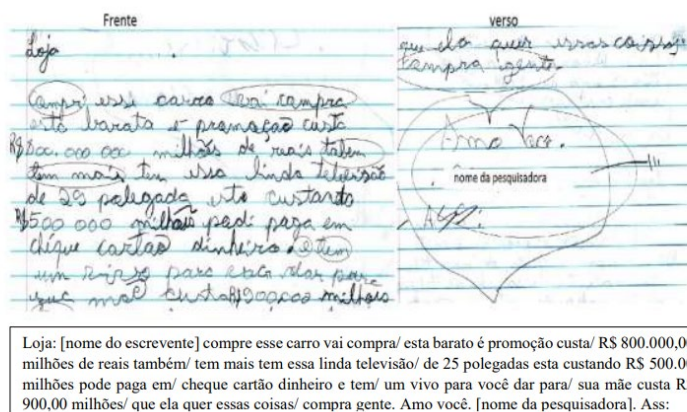 Frente
Loja
Campri esse carro vai campra
esta barata é promoção custa
R$800.000 000 milhões de reais
tem mais tem essa linda televisão
de 29 polegada esta custando
R$500 000 milhão padi paga em
chique cartão dinheiro. e tem
um para dar para
mãe custa R$900,000 milhões
verso
que ela quer essas coisas
campra gente.
Amo Você.
nome da pesquisadora
Loja: [nome do escrevente] compre esse carro vai compra/ esta barato é promoção custa/ R$ 800.000,00
milhões de reais também/ tem mais tem essa linda televisão/ de 25 polegadas esta custando R$ 500.00
milhões pode paga em/ cheque cartão dinheiro e tem/ um vivo para você dar para/ sua mãe custa R
900,00 milhões/ que ela quer essas coisas/ compra gente. Amo você. [nome da pesquisadora]. Ass: